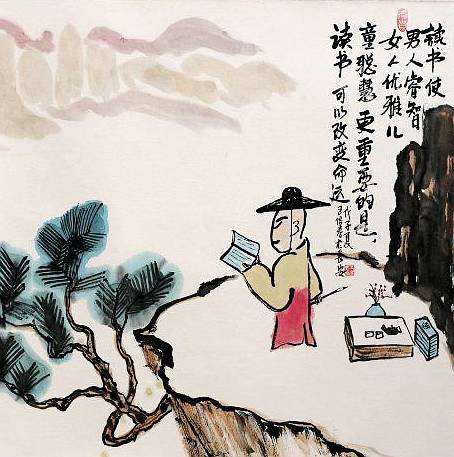 读书使
男人睿智
女人优雅儿
童聪慧更重要的是，
读书可以改变命运
戊子夏
长安